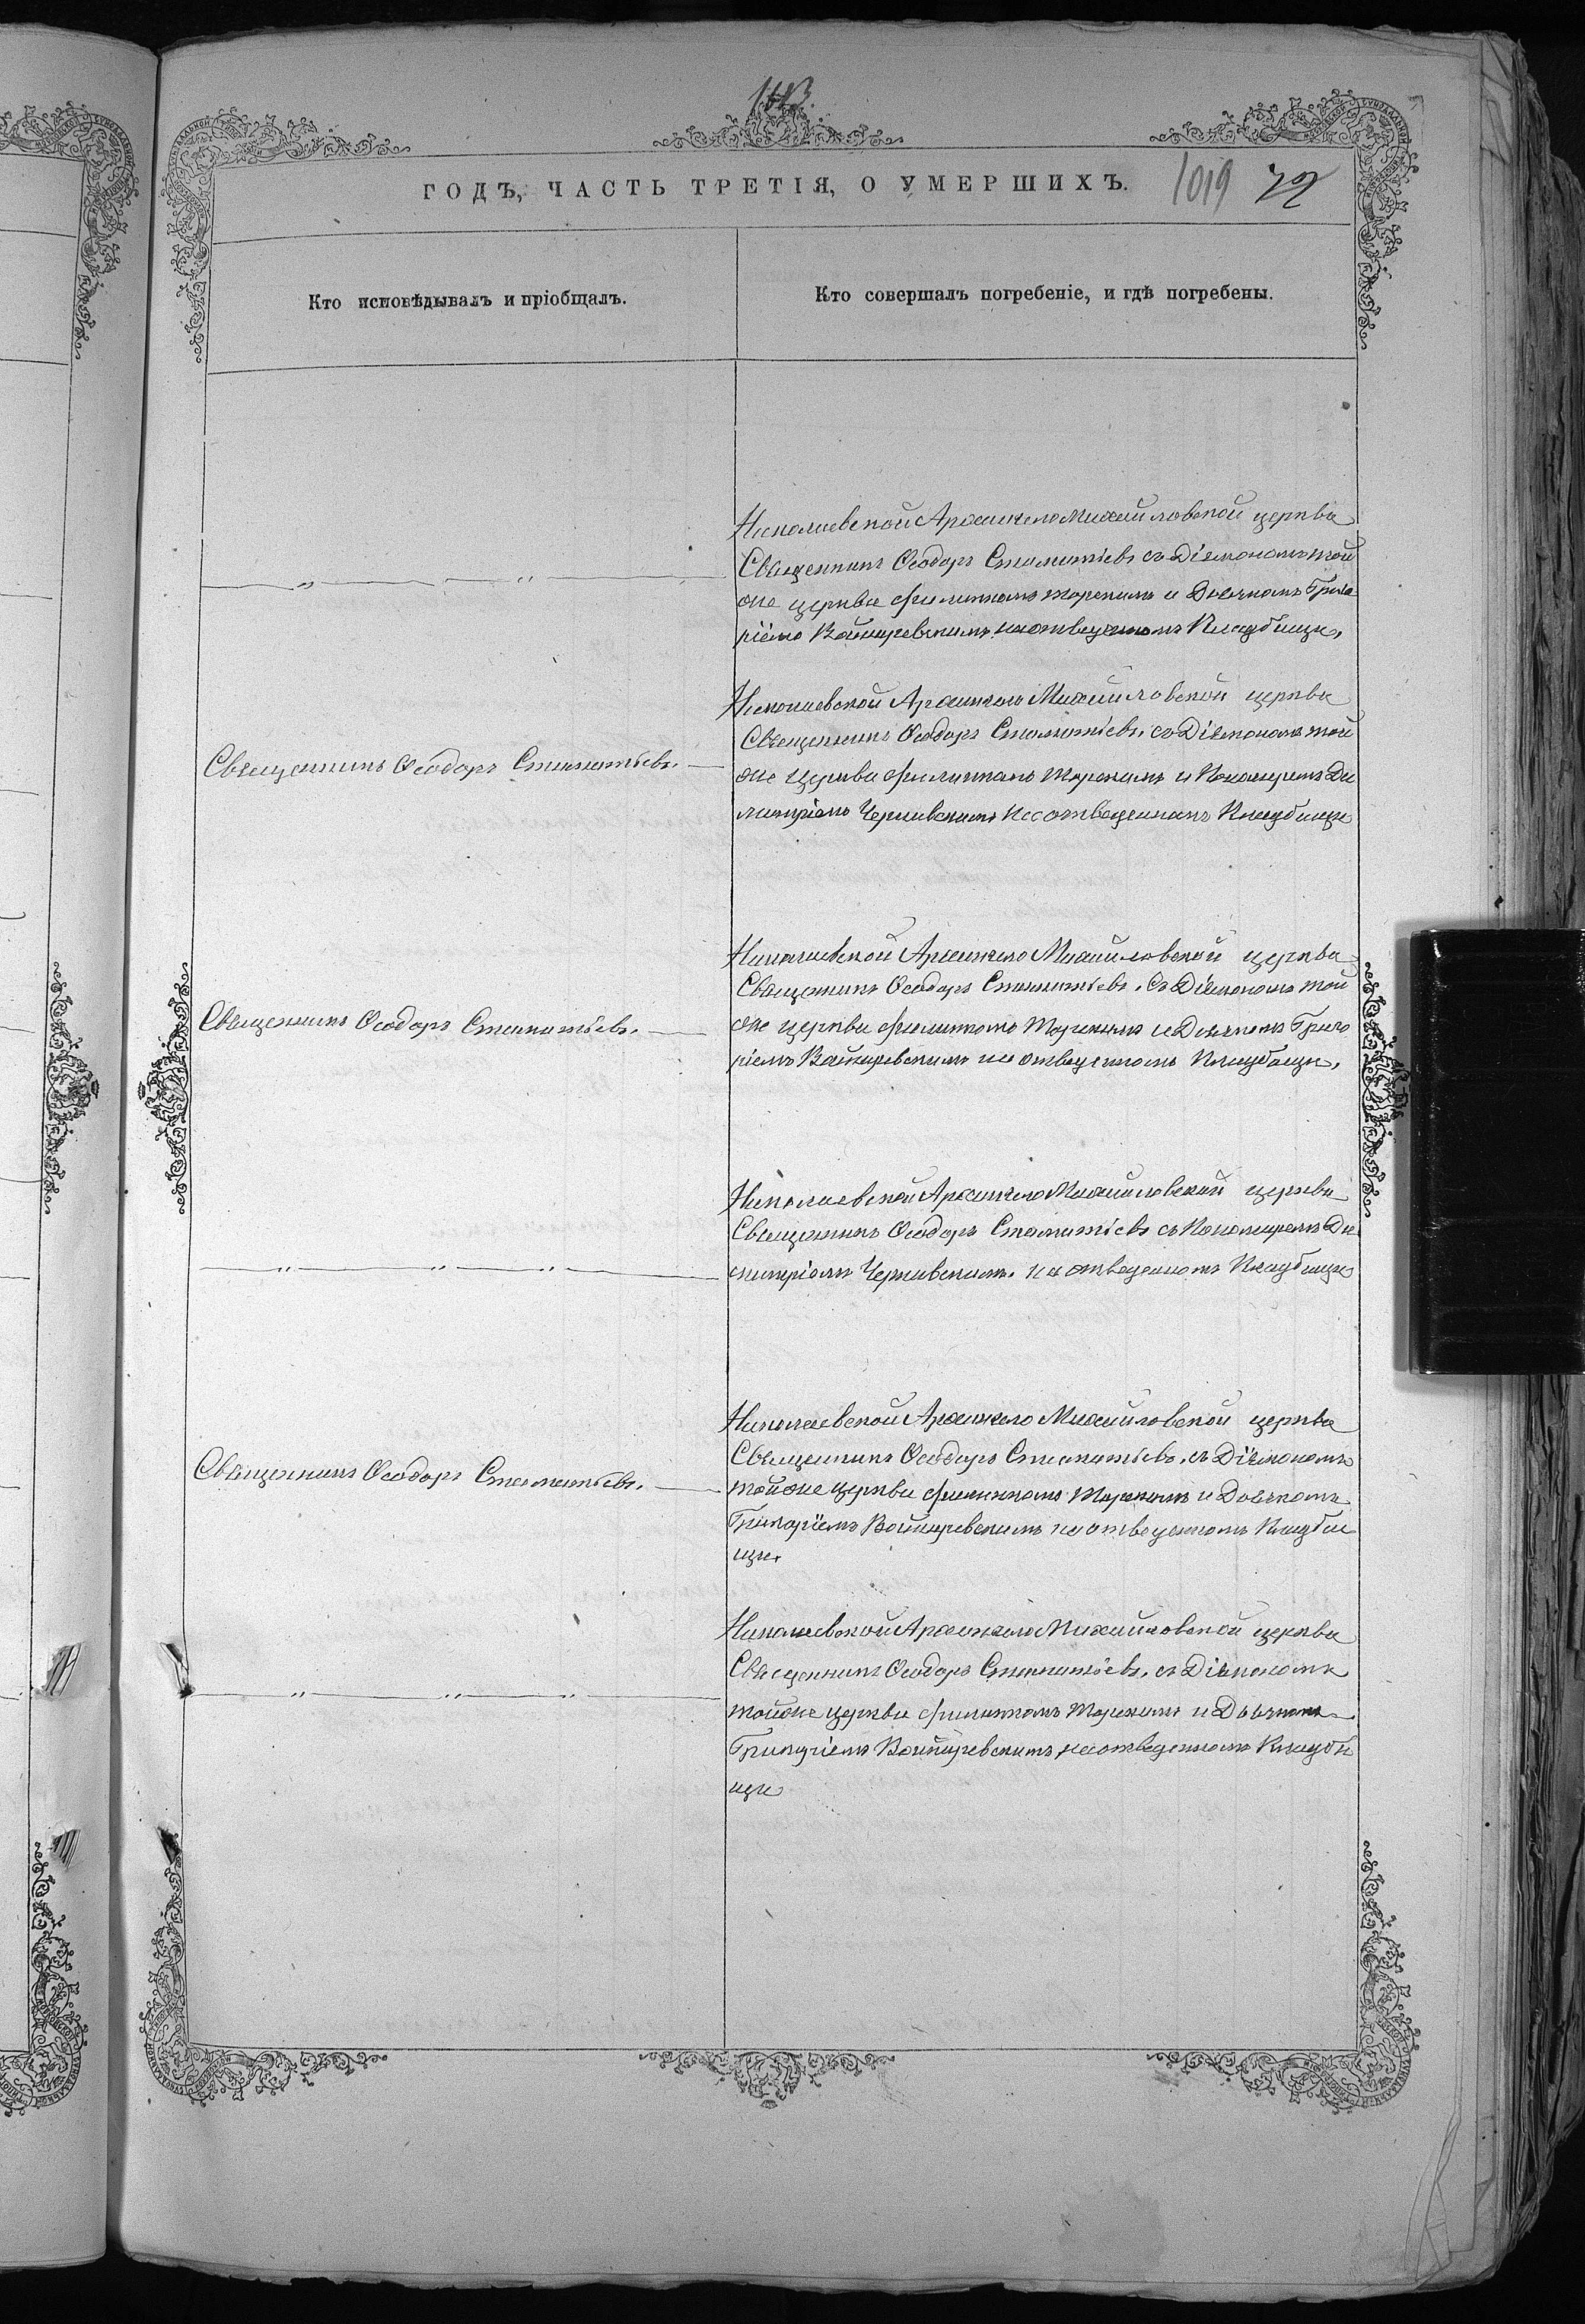 1013.
ГОДЪ, ЧАСТЬ ТРЕТІЯ, О УМЕРШИХЪ.
1019 72
Кто исповѣдывалъ и пріобщалъ.
Кто совершалъ погребеніе, и гдѣ погребены.
Николаевской Архангело Михайловской церкви
Священникъ Ѳеодоръ Стаматіевъ съ Діякономъ той
же церкви Филиппомъ Торскимъ и Дьячкомъ Григо
ріемъ Войцеревскимъ на отведенномъ Кладбищи,
Священникъ Ѳеодоръ Стаматіевъ.
Николаевской Архангело Михайловской церкви
Священникъ Ѳеодоръ Стаматіевъ, съ Діякономъ той
же церкви Филиппомъ Торскимъ и Пономаремъ Ди
митріемъ Чернявскимъ на отведенномъ Кладбищи
Священникъ Ѳеодоръ Стаматіевъ.
Николаевской Архангело Михайловской церкви
Священникъ Ѳеодоръ Стаматіевъ, съ Діякономъ той
же церкви Филиппомъ Торскимъ и Дьячкомъ Григо
ріемъ Войцеревскимъ на отведенномъ Кладбищи,
Николаевской Архангело Михайловской церкви
Священникъ Ѳеодоръ Стаматіевъ съ Пономаремъ Ди
митріемъ Чернявскимъ на отведенномъ Кладбищи
Священникъ Ѳеодоръ Стаматіевъ.
Николаевской Архангело Михайловской церкви
Священникъ Ѳеодоръ Стаматіевъ, съ Діякономъ
той же церкви Филиппомъ Торскимъ и Дьячкомъ
Григоріемъ Войцеревскимъ на отведенномъ Кладби
щи.
Николаевской Архангело Михайловской церкви
Священникъ Ѳеодоръ Стаматіевъ, съ Діякономъ
той же церкви Филиппомъ Торскимъ и Дьячкомъ
Григоріемъ Войцеревскимъ на отведенномъ Кладби
щи